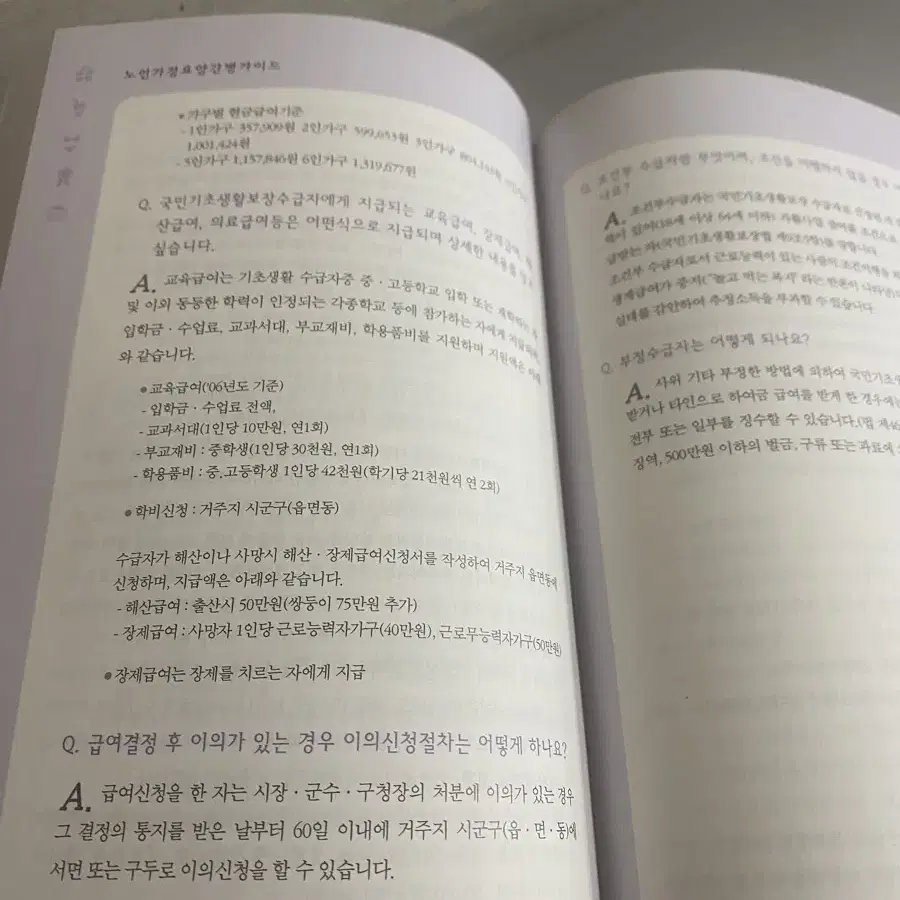 노인가정요양간병가이드
● 가구별 현금급여기준
- 1인가구 357,909원 2인가구 599,653원 3인가구
1,001,424원
- 5인가구 1,157,846원 6인가구 1,319,677원
Q. 국민기초생활보장수급자에게 지급되는 교육급여, 장제급여, 해
산급여, 의료급여등은 어떤식으로 지급되며 상세한 내용을 알고
싶습니다.
A. 교육급여는 기초생활 수급자중 중·고등학교 입학 또는
및 이와 동등한 학력이 인정되는 각종학교 등에 참가하는 자에게
입학금·수업료, 교과서대, 부교재비, 학용품비를 지원하며 지원액은 아래
와 같습니다.
● 교육급여('06년도 기준)
- 입학금·수업료 전액,
- 교과서대(1인당 10만원, 연1회)
- 부교재비 : 중학생(1인당 30천원, 연1회)
- 학용품비 : 중.고등학생 1인당 42천원(학기당 21천원씩 연 2회)
● 학비신청 : 거주지 시군구(읍면동)
수급자가 해산이나 사망시 해산·장제급여신청서를 작성하여 거주지 읍면동에
신청하며, 지급액은 아래와 같습니다.
- 해산급여 : 출산시 50만원(쌍둥이 75만원 추가)
- 장제급여 : 사망자 1인당 근로능력자가구(40만원), 근로무능력자가구(50만원)
● 장제급여는 장제를 치르는 자에게 지급
Q. 급여결정 후 이의가 있는 경우 이의신청절차는 어떻게 하나요?
A. 급여신청을 한 자는 시장·군수·구청장의 처분에 이의가 있는 경우
그 결정의 통지를 받은 날부터 60일 이내에 거주지 시군구(읍·면·동)에
서면 또는 구두로 이의신청을 할 수 있습니다.
Q. 조건부 수급자란 무엇이며, 조건을 이행하지 않을 경우
나요?
A. 조건부수급자는 국민기초생활보장 수급자로
력이 있어(18세 이상 64세 이하) 자활사업 참여를 조건으로
급받는 자(국민기초생활보장법 제9조5항)를 말합니다.
조건부 수급자로서 근로능력이 있는 사람의 조건이행을
생계급여가 중지("놀고 먹는 복지"라는 반론이
실태를 감안하여 추정소득을 부과할 수 있습니다.
Q. 부정수급자는 어떻게 되나요?
A. 사위 기타 부정한 방법에 의하여 국민기초생
받거나 타인으로 하여금 급여를 받게 한 경우에는
전부 또는 일부를 징수할 수 있습니다.(법 제46
징역, 500만원 이하의 벌금, 구류 또는 과료에